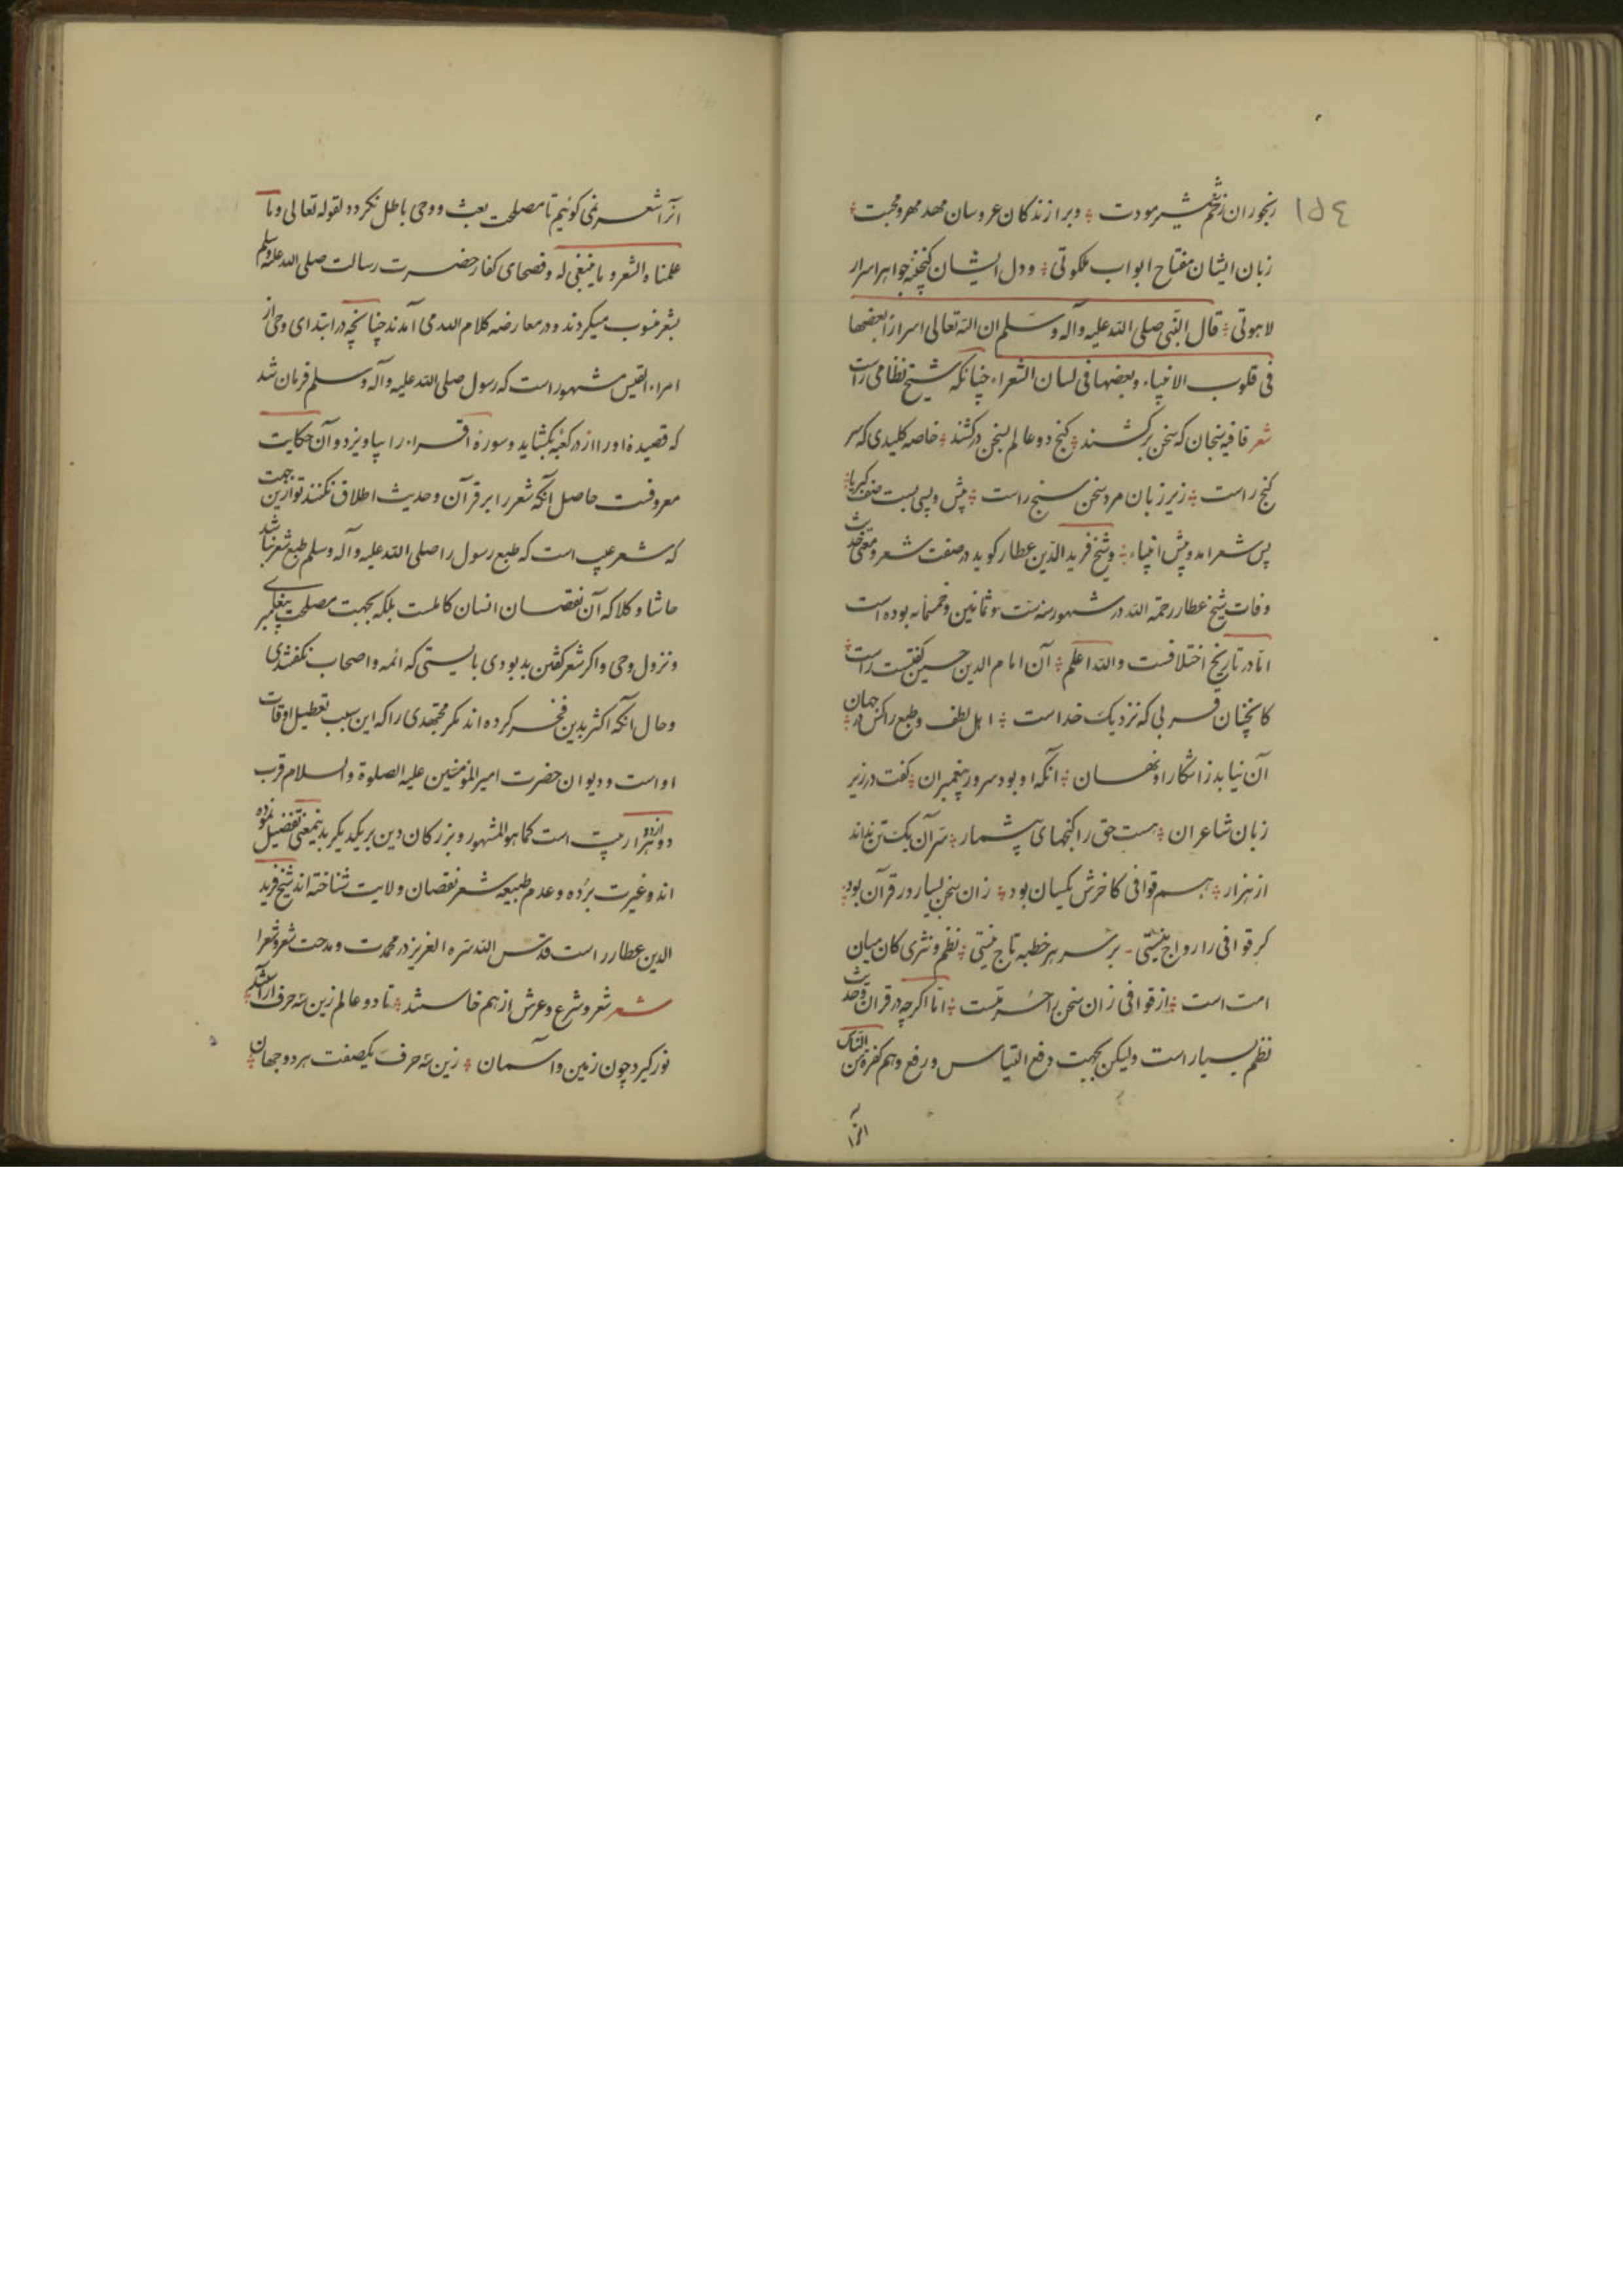 ١٥٤
رنجوران زخم شمشیر مودت و برازندکان عروسان مهد مهر و محبت
زبان ایشان مفتاح ابواب ملکوتی و دل ایشان کنجینهٔ جواهر اسرار
لاهوتی قال النبی صلی الله علیه وآله وسلم ان الله تعالی اسراراً بعضها
فی قلوب الانبیاء وبعضها فی لسان الشعراء چنانکه شیخ نظامی راست
شعر قافیه سنجان که سخن برکشند کنج دو عالم بسخن درکشند خاصه کلیدی که سر
کنج راست زیر زبان مرد سخن سنج راست پیش و پسی بست صف کبریا
پس شعرا آمد و پیش انبیاء و شیخ فرید الدین عطار کوید در صفت شعر و معنی حدیث
وفات شیخ عطار رحمة الله در شهور سنه ست و ثمانین و خمسمأیه بوده است
اما در تاریخ اختلافست والله اعلم آن امام الدین حسین کفتست راست
کانچنان قربی که نزدیک خداست اهل لطف و طبع را کس در جهان
آن نیابد ز آشکارا و نهان انکه او بود سرور پیغمبران کفت در زیر
زبان شاعران هست حق را کنجهای بیشمار سر آن یک تن نداند
از هزار هم قوافی کاخرش یکسان بود زان سخن بسیار در قرآن بود
کر قوافی را رواج نیستی بر سر هر خطبه تاج نیستی نظم و نثری کان میان
امت است از قوافی زان سخن را حرمتست اما اکرچه در قران و حدیث
نظم بسیار است ولیکن بجهت دفع التباس و رفع وهم کفرة من الناس
انرا
انرا شعر نمی کوئیم تا مصلحت بعث و وحی باطل نکردد لقوله تعالی وما
علمناه الشعر وما ینبغی له و فصحای کفار حضرت رسالت صلی الله علیه وسلم
بشعر منسوب میکردند و در معارضه کلام الله می آمدند چنانچه در ابتدای وحی از
امراء القیس مشهور است که رسول صلی الله علیه وآله وسلم فرمان شد
که قصیدهٔ او را از در کعبه بکشاید و سورهٔ اقراء را بیاویزد و آن حکایت
معروفست حاصل آنکه شعر را بر قرآن و حدیث اطلاق نکنند تو ازین جهت
که شعر عیب است که طبع رسول را صلی الله علیه وآله وسلم طبع شعر نباشد
حاشا و کلا که آن نقصان انسان کاملست بلکه بجهت مصلحت پیغامبری
و نزول وحی و اکر شعر کفتن بد بودی بایستی که ائمه و اصحاب نکفتندی
و حال آنکه اکثر بدین فخر کرده اند مکر مجتهدی را که این سبب تعطیل اوقات
او است و دیوان حضرت امیر المؤمنین علیه الصلوة والسلام قرب
دوازده هزار بیت است کما هو المشهور و بزرکان دین بر یکدیکر بدینمعنی تفضیل نموده
اند و غیرت برده و عدم طبیعه شعر نقصان ولایت شناخته اند شیخ فرید
الدین عطار راست قدس الله سره العزیز در محمدت و مدحت شعر و شعرا
شعر شعر و شرع و عرش از هم خاستند تا دو عالم زین سه حرف آراستند
نور کیرد چون زمین و آسمان زین سه حرف یکصفت هر دو جهان